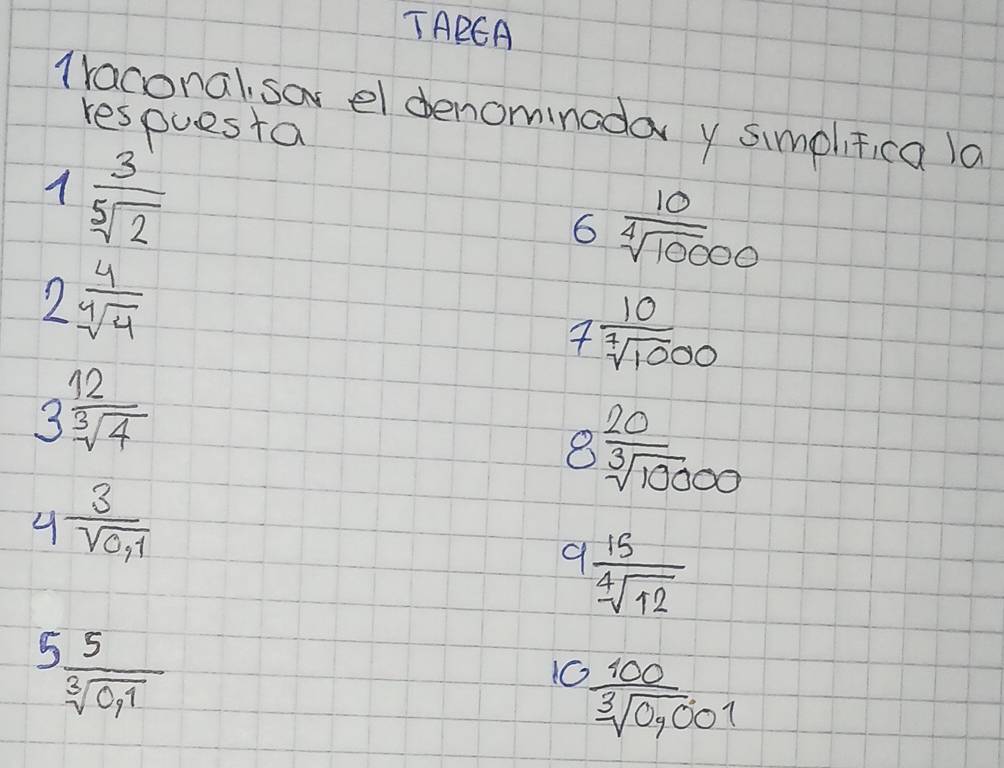 TAREA
1 raconalisar el denominador y simplifica la
respuesta
1 3/⁵√2
2 4/⁴√4
3 12/³√4
4 3/√0,1
5 5/³√0,1
6 10/⁴√10000
7 10/⁷√1000
8 20/³√10000
9 15/⁴√12
10 100/³√0,001